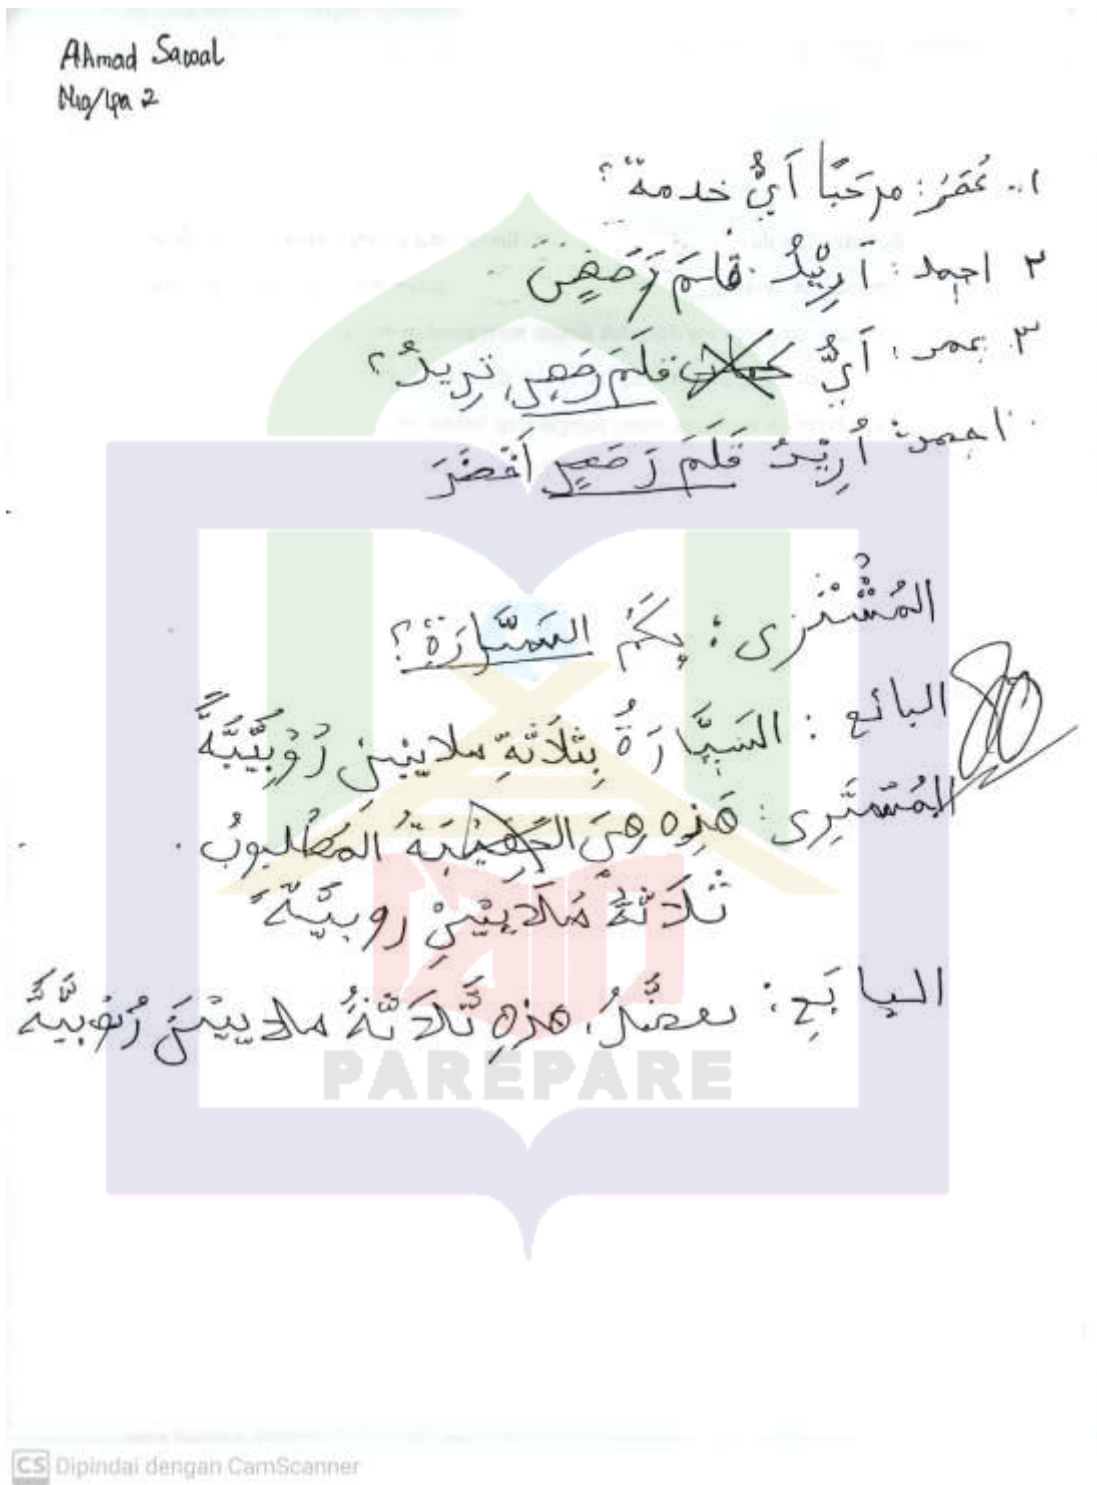 Ahmad Sawal
١. عُمَرُ: مرحَبًا اَيُّ خدمة؟
٢ احمد: اَرِيْدُ قَاسَمَ رَصَصٍَ
٣. عمر: اَيُّ قلَمَ رَصِصٍ تريدُ؟
احمد: اُرِيْدُ قَلَمَ رَصَصٍ اَخْضَرَ
المُشْتَرِى: بِكَمْ السَيَّارَةِ؟
البائع: السَيَّارَةُ بِثَلَاثَةِ ملايين رُوْبِيَّةً
المُشْتَرِى: هَذِه هِيَ المَطْلوبُ.
ثَلَاثَةُ مَلَايِيْنِ روبيَّة
البابَع: هَذِهِ ثَلَاثَةُ ملايِيْنَ رُوْبِيَّةً
80
PAREPARE
CS Dipindai dengan CamScanner